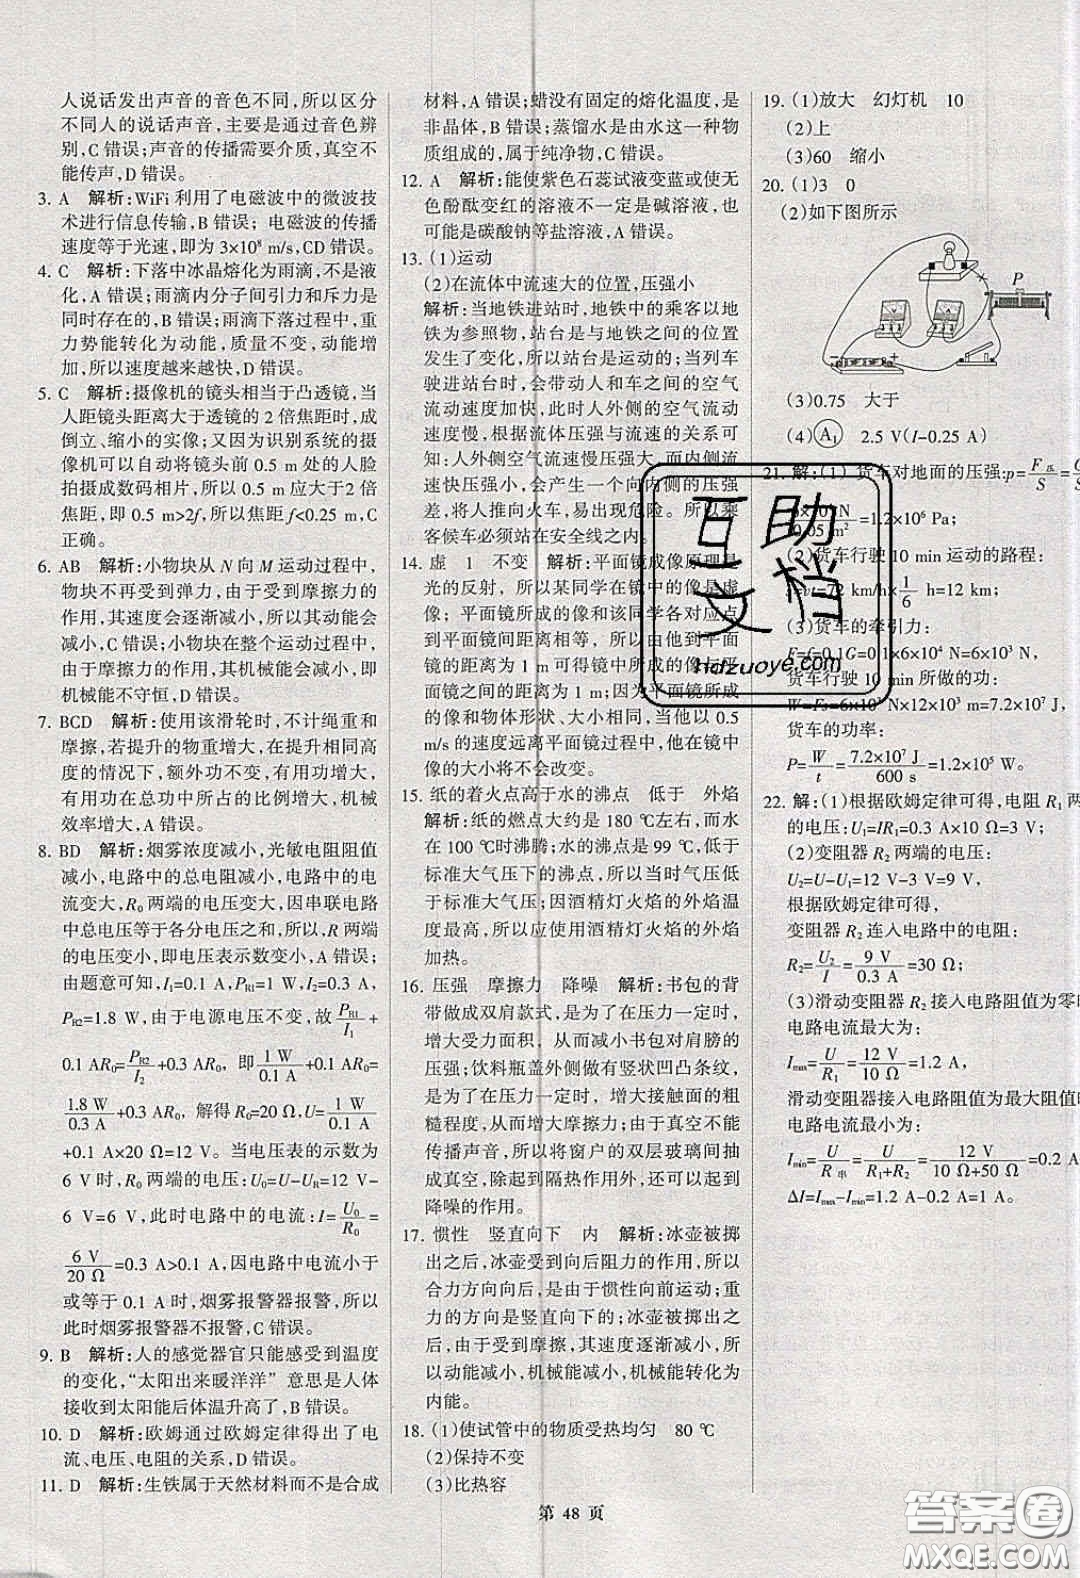 人说话发出声音的音色不同,所以区分
不同人的说话声音,主要是通过音色辨
别,C错误;声音的传播需要介质,真空不
能传声,D错误。
3. A 解析:WiFi利用了电磁波中的微波技
术进行信息传输,B错误;电磁波的传播
速度等于光速,即为3×10⁸ m/s,CD错误。
4. C 解析:下落中冰晶熔化为雨滴,不是液
化,A错误;雨滴内分子间引力和斥力是
同时存在的,B错误;雨滴下落过程中,重
力势能转化为动能,质量不变,动能增
加,所以速度越来越快,D错误。
5. C 解析:摄像机的镜头相当于凸透镜,当
人距镜头距离大于透镜的2倍焦距时,成
倒立、缩小的实像;又因为识别系统的摄
像机可以自动将镜头前0.5 m处的人脸
拍摄成数码相片,所以0.5 m应大于2倍
焦距,即0.5 m>2f,所以焦距f<0.25 m,C
正确。
6. AB 解析:小物块从N向M运动过程中,
物块不再受到弹力,由于受到摩擦力的
作用,其速度会逐渐减小,故其动能会减
小,C错误;小物块在整个运动过程中,
由于摩擦力的作用,其机械能会减小,即
机械能不守恒,D错误。
7. BCD 解析:使用该滑轮时,不计绳重和
摩擦,若提升的物重增大,在提升相同高
度的情况下,额外功不变,有用功增大,
有用功在总功中所占的比例增大,机械
效率增大,A错误。
8. BD 解析:烟雾浓度减小,光敏电阻阻值
减小,电路中的总电阻减小,电路中的电
流变大,R₀两端的电压变大,因串联电路
中总电压等于各分电压之和,所以,R两端
的电压变小,即电压表示数变小,A错误;
由题意可知,I₁=0.1 A,P_R1=1 W,I₂=0.3 A,
P_R2=1.8 W,由于电源电压不变,故P_R1/I₁+
0.1 AR₀=P_R2/I₂+0.3 AR₀,即1 W/0.1 A+0.1 AR₀=
1.8 W/0.3 A+0.3 AR₀,解得R₀=20 Ω,U=1 W/0.1 A
+0.1 A×20 Ω=12 V。当电压表的示数为
6 V时,R₀两端的电压:U₀=U-U_R=12 V-
6 V=6 V,此时电路中的电流:I=U₀/R₀=
6 V/20 Ω=0.3 A>0.1 A,因电路中电流小于
或等于0.1 A时,烟雾报警器报警,所以
此时烟雾报警器不报警,C错误。
9. B 解析:人的感觉器官只能感受到温度
的变化,“太阳出来暖洋洋”意思是人体
接收到太阳能后体温升高了,B错误。
10. D 解析:欧姆通过欧姆定律得出了电
流、电压、电阻的关系,D错误。
11. D 解析:生铁属于天然材料而不是合成
材料,A错误;蜡没有固定的熔化温度,是
非晶体,B错误;蒸馏水是由水这一种物
质组成的,属于纯净物,C错误。
12. A 解析:能使紫色石蕊试液变蓝或使无
色酚酞变红的溶液不一定是碱溶液,也
可能是碳酸钠等盐溶液,A错误。
13. (1)运动
(2)在流体中流速大的位置,压强小
解析:当地铁进站时,地铁中的乘客以地
铁为参照物,站台是与地铁之间的位置
发生了变化,所以站台是运动的;当列车
驶进站台时,会带动人和车之间的空气
流动速度加快,此时人外侧的空气流动
速度慢,根据流体压强与流速的关系可
知:人外侧空气流速慢压强大,而内侧流
速快压强小,会产生一个向内侧的压强
差,将人推向火车,易出现危险。所以乘
客候车必须站在安全线之内。
14. 虚 1 不变 解析:平面镜成像原理是
光的反射,所以某同学在镜中的像是虚
像;平面镜所成的像和该同学各对应点
到平面镜间的距离相等,所以由平面
镜的距离为1 m可得镜中所成的像与平
面镜之间的距离为1 m;因为平面镜所成
的像和物体形状、大小相同,当他以0.5
m/s的速度远离平面镜过程中,他在镜中
像的大小将不会改变。
15. 纸的着火点高于水的沸点 低于 外焰
解析:纸的燃点大约是180 ℃左右,而水
在100 ℃时沸腾;水的沸点是99 ℃,低于
标准大气压下的沸点,所以当地气压低于
标准大气压;因酒精灯火焰的外焰温度
最高,所以,应使用酒精灯火焰的外焰
加热。
16. 压强 摩擦力 降噪 解析:书包的背
带做成双肩款式,是在压力一定时,
增大受力面积,从而减小书包对肩膀的
压强;饮料瓶盖外侧做有竖状凹凸条纹,
是为了在压力一定时,增大接触面的粗
糙程度,从而增大摩擦力;由于真空不能
传播声音,所以将窗户的双层玻璃间抽
成真空,除起到隔热作用外,还可以起到
降噪的作用。
17. 惯性 竖直向下 内 解析:冰壶被掷
出之后,冰壶受到向后阻力的作用,所以
合力方向向后,是由于惯性向前运动;重
力的方向是竖直向下的;冰壶被掷出之
后,由于受到摩擦,所以速度逐渐减小,所
以动能减小,机械能减小,机械能转化为
内能。
18. (1)使试管中的物质受热均匀 80 ℃
(2)保持不变
(3)比热容
19. (1)放大 幻灯机 10
(2)上
(3)60 缩小
20. (1)3 0
(2)如下图所示
P
- +
(3)0.75 大于
(4)A₁ 2.5 V(I-0.25 A)
21. 解:(1)货车对地面的压强:p=F压/S=
=1.2×10⁶ Pa;
(2)货车行驶10 min运动的路程:
s=vt=72 km/h×1/6 h=12 km;
(3)货车的牵引力:
F=f=0.1G=0.1×6×10⁴ N=6×10³ N,
货车行驶10 min所做的功:
W=Fs=6×10³ N×12×10³ m=7.2×10⁷ J,
货车的功率:
P=W/t=7.2×10⁷ J/600 s=1.2×10⁵ W。
22. 解:(1)根据欧姆定律可得,电阻R₁两
的电压:U₁=IR₁=0.3 A×10 Ω=3 V;
(2)变阻器R₂两端的电压:
U₂=U-U₁=12 V-3 V=9 V,
根据欧姆定律可得,
变阻器R₂连入电路中的电阻:
R₂=U₂/I=9 V/0.3 A=30 Ω;
(3)滑动变阻器R₂接入电路阻值为零
电路电流最大为:
I_max=U/R₁=12 V/10 Ω=1.2 A,
滑动变阻器接入电路阻值为最大阻值
电路电流最小为:
I_min=U/R串=U/(R₁+R₂)=12 V/(10 Ω+50 Ω)=0.2 A
ΔI=I_max-I_min=1.2 A-0.2 A=1 A。
第 48 页
互助文档
hdzuoye.com
答案圈
MXQE.COM